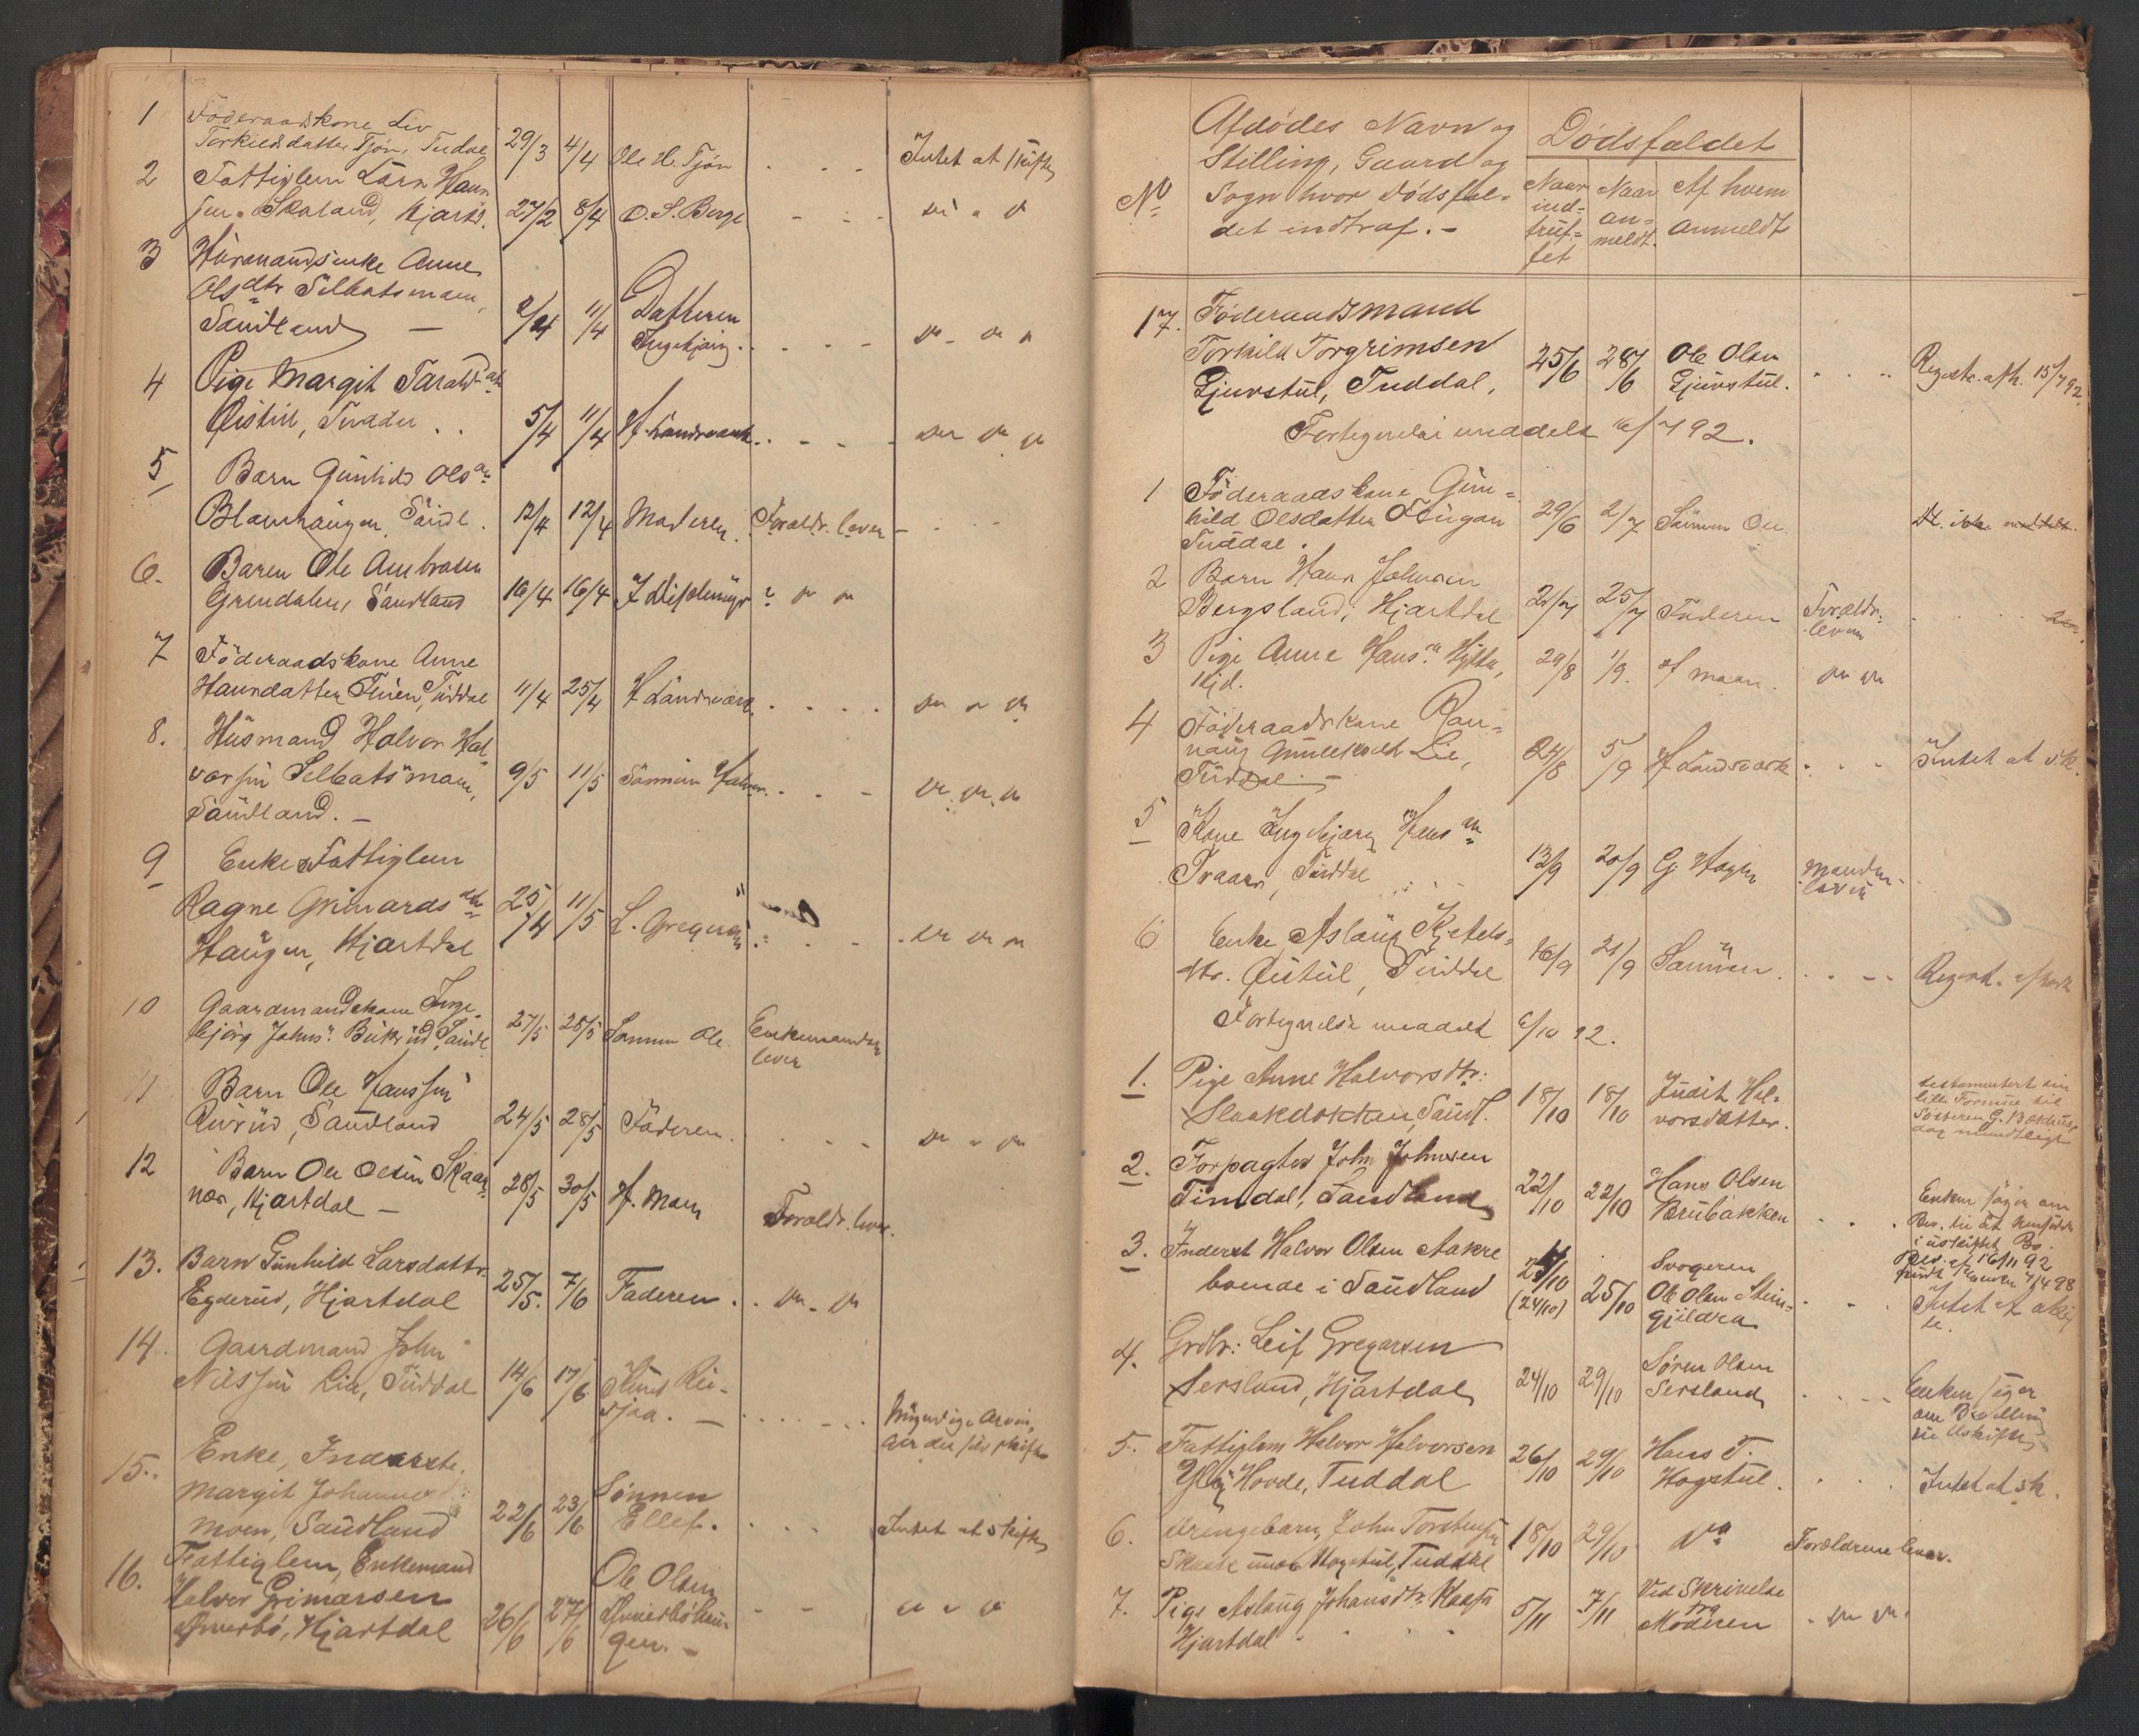 1 Föderaadskone Liv
Torkildsdatter Tjøn, Tudal 29/3 4/4 Ole H. Tjøn . . . Intet at skifte
2 Fattiglem Lars Hans
sen Skoland, Hjartd. 27/2 8/4 O. S. Berge - - - do " do
3 Husmandsenke Anne
Olsdtr Selbatsmoen,
Saudland — 2/4 11/4 Datteren
Ingebjørg . . . - do - do "
4 Pige Margit Taralds dtr
Qistul, Tuddal . . 5/4 11/4 H. Landsverk . - - - do do do
5 Barn Gunhild Ols dtr
Haugen, Saudl. 12/4 12/4 Moderen. Forældr. lever - . . -
6. Barn Ole Ambrosen
Grendalen, Saudland 16/4 16/4 do do
7 Föderaadskone Anne
Hansdatter Tuddal 11/4 25/4 H Landsverk . . . . do " do
8. Husmand Halvor Hal
vorsen Selbatsmoen,
Saudland. — 9/5 11/5 Sønnen Halvor . . . - do do do
9 Enke Fattiglem
Ragne Grimards dtr
Haugen, Hjartdal 25/4 11/5 L. Gregersen . . - - do do do
10 Gaardmandskone Inge-
björg Johns: Saudl. 27/5 28/5 Sønnen Ole. Enkemanden
lever
11 Barn Ole Hanssen
Saudland 24/5 28/5 Faderen. . . - - do " do
12 Barn Ole Olsen Skaar-
nes, Hjartdal — 28/5 30/5 H. Moen Forældr. lever.
13. Barn Gunhild Larsdattr.
Egderud, Hjartdal 25/5. 7/6 Faderen . . do - do
14. Gaardmand John
Nilssen Lia, Tuddal 14/6 17/6 Knud Rei-
sjaa. — . . . . - . . Myndige Arvin,
15. Enke, Inderste
Margit Johannesd:
Moen, Saudland 22/6 23/6 Sønnen
Ellef. . . . . Intet at skifte
16. Fattiglem, Enkemand
Halvor Grimarsen
Hjartdal 26/6 27/6 Ole Olsen
gen. — - - do " do
No Afdödes Navn og
Stilling, Gaard og
Sogn hvor Dödsfal-
det indtraf. —
Dödsfaldet
Naar
ind-
truf-
fet
Naar
an-
meldt.
Af hvem
anmeldt
17. Föderaadsmand
Torkild Torgrimsen
Gjuvstul, Tuddal, 25/6 28/6 Ole Olsen
Gjuvstul. . . .. Registr. afh. 15/7 92.
Fortegnelse meddelt 16/7 92.
1 Föderaadskone Gun-
hild Olsdatter Haugan
Tuddal. 29/6 2/7 Sønnen Ole
2 Barn Hans Johnsen
Bergsland, Hjartdal 21/7 25/7 Faderen Forældr:
lever . . . .
3 Pige Anne Hans: Hytta,
Hjd. 29/8 1/9. H moen. do do
4 Föderaadskone Ran-
naug Gunleiksdt Lie,
Tuddal. — 24/8 5/9 H Landsverk . . . Intet at sk.
5 Kone Ingebjørg Hans dtr
Traaen, Tuddal . . 13/9 20/9 G Manden
lever
6 Enke Aslaug Kjetels-
dtr. Qistul, Tuddal 16/9 21/9 Sønnen . . . - -
Fortegnelse meddelt 6/10 92.
1. Pige Anne Halvorsdtr:
Slaakdokken, Saudl. 18/10 18/10 Judit Hal-
vorsdatter.
testamentert sin
lille Formue til
Søsteren G. Bakhus,
dog mundtligt
2. Forpagter John Johnsen
Timdal, Saudland 22/10 22/10 Hans Olsen
Brubakken . . . Enken søger om
Bev. til at hensidde
i uskiftet Bo.
Bev. af 16/11 92
3. Inderst Halvor Olsen Aakre
boende i Saudland 24/10
(24/10) 25/10 Svogeren
Ole Olsen Stein-
gjildra . . . Intet at skif
te.
4. Grdbr: Leif Gregarsen
Sersland, Hjartdal 24/10 29/10 Søren Olsen
Sersland . . . - Enken søger
om Bevilling
til Uskifte
5. Fattiglem Halvor Halvorsen
Hovde, Tuddal 26/10 29/10 Hans T.
Hogstul. . . Intet at sk.
6. Drengebarn John Torstensen
Skaate under Hogstul, Tuddal 18/10 29/10 do Forældrene lever.
7. Pige Aslaug Johansdtr. Kaasa
Hjartdal . . . . 5/11 7/11 Ved Skrivelse
fra
Moderen . do do.